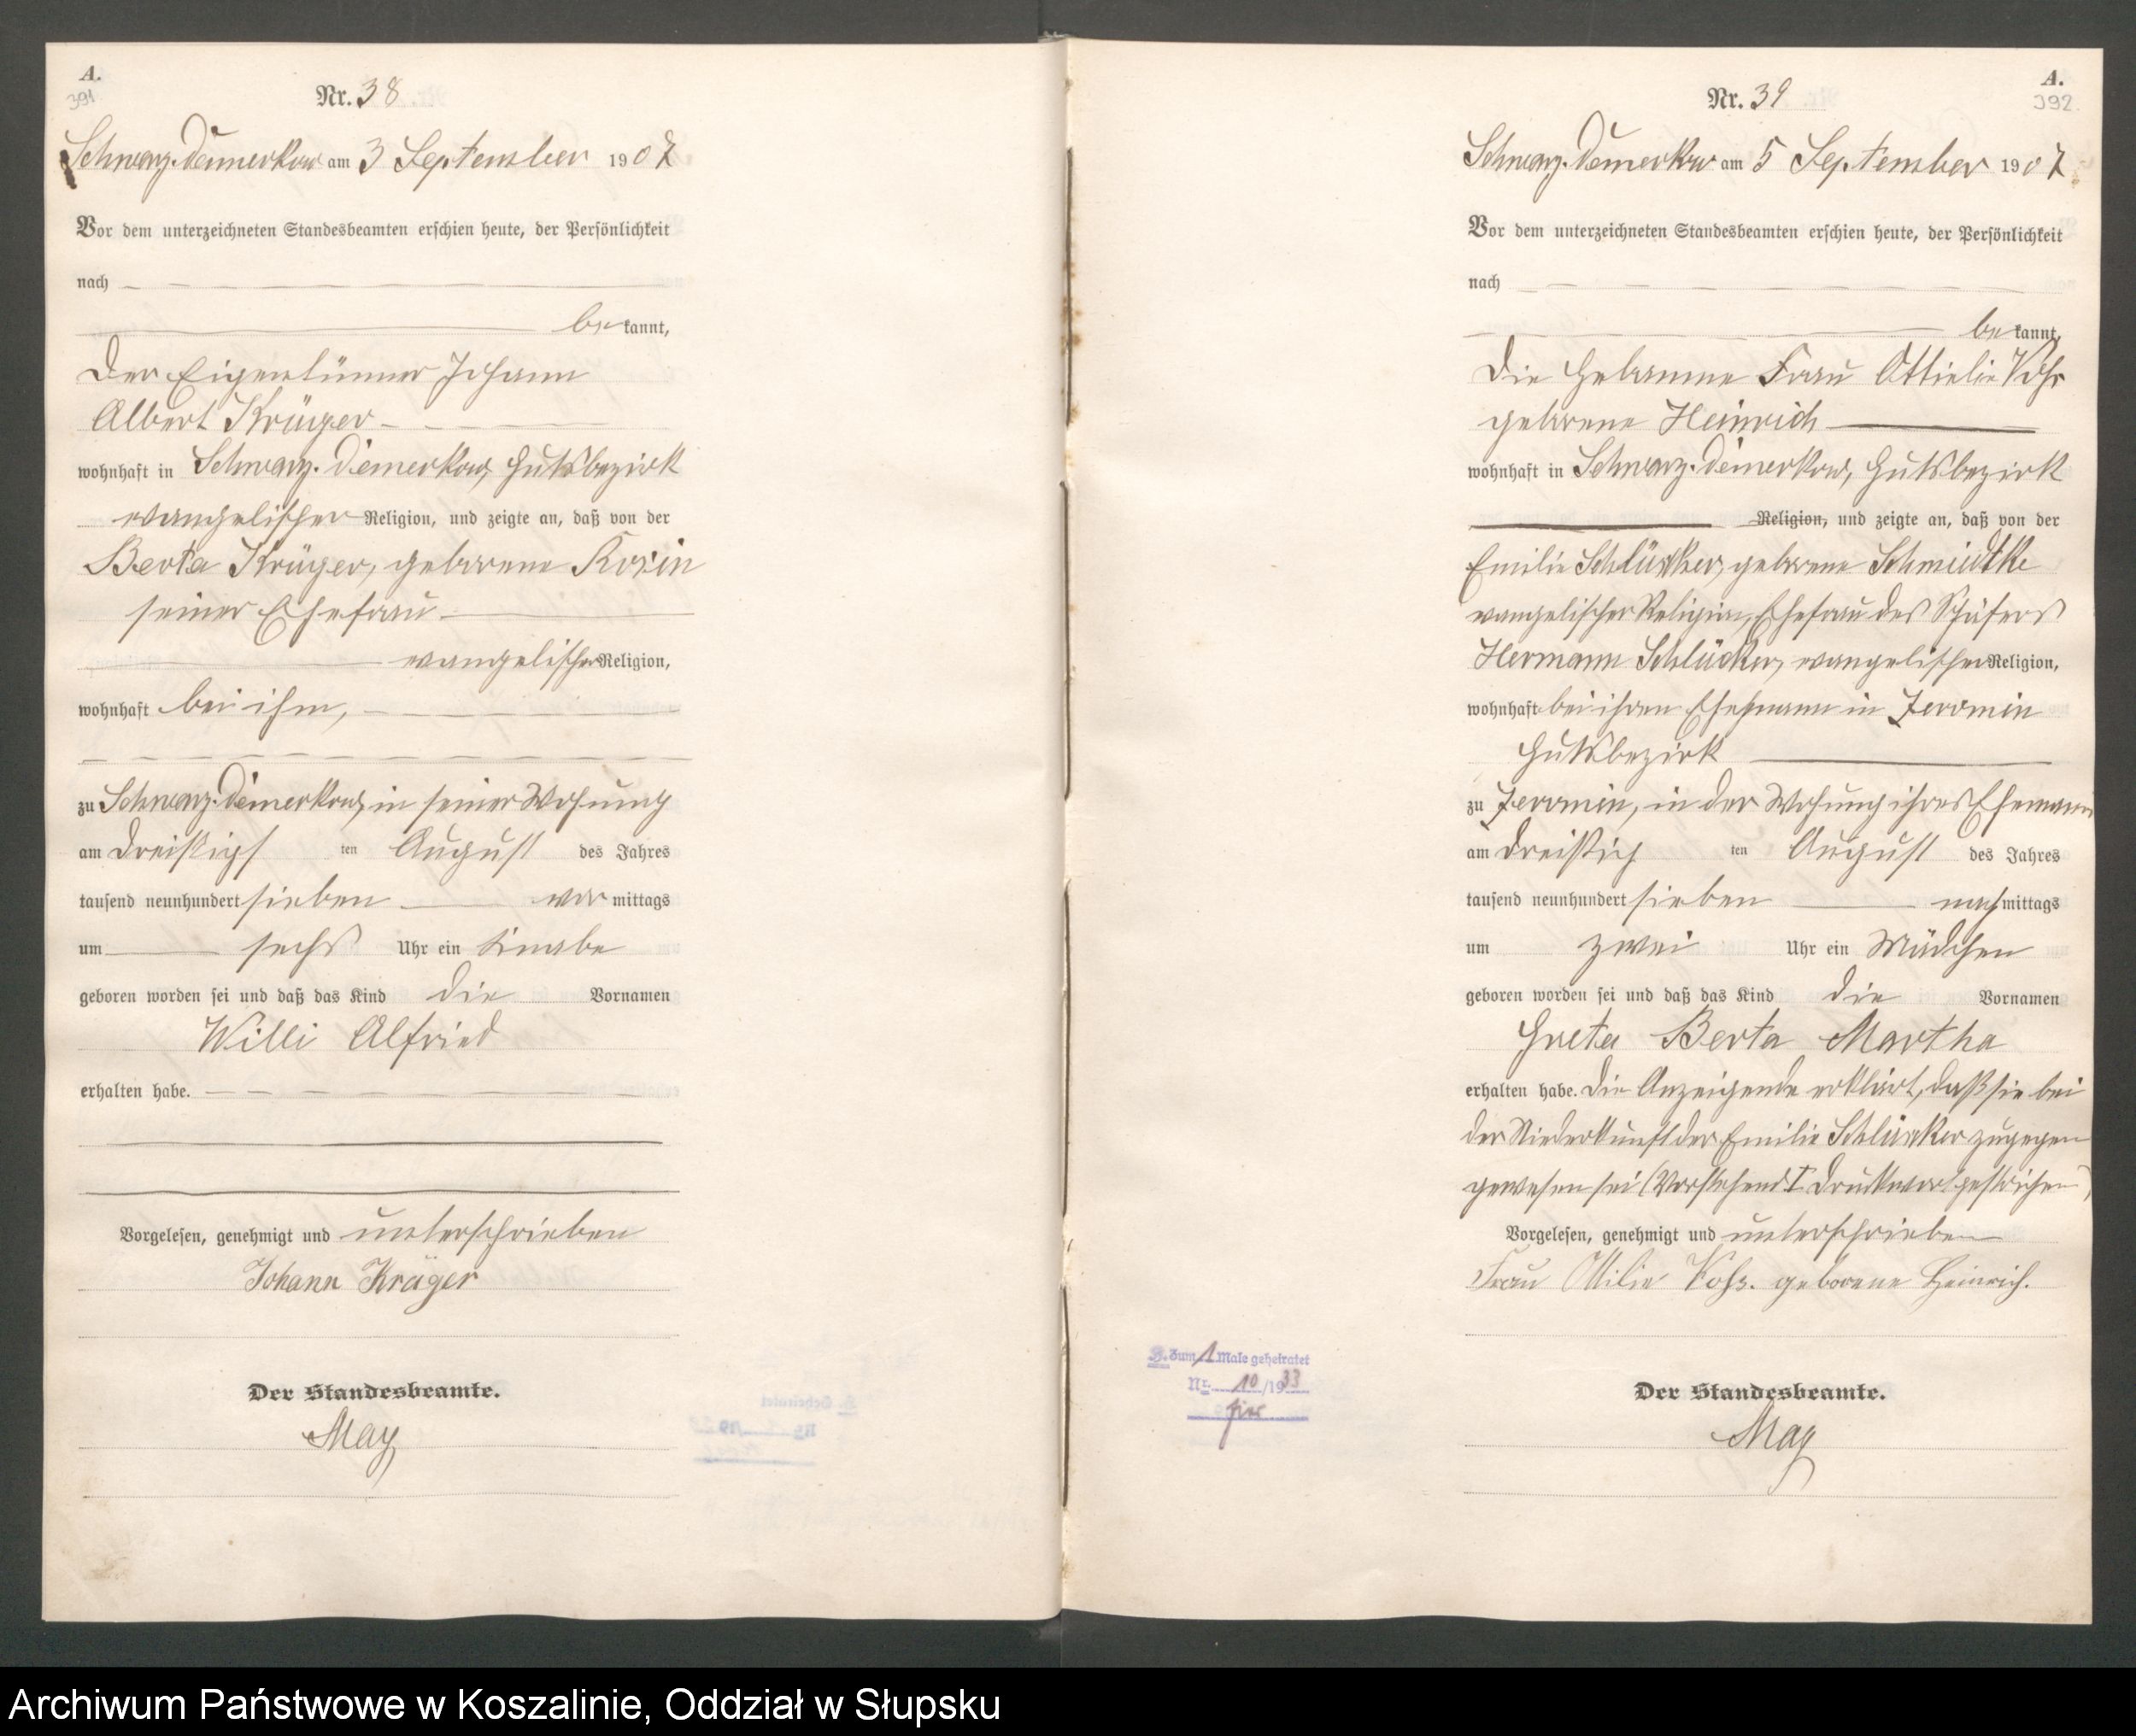 A.
391
Nr. 38
Schwarz-Damerkow am 3 September 1907
Vor dem unterzeichneten Standesbeamten erschien heute, der Persönlichkeit
nach
bekannt,
Der Eigentümer Johann
Albert Krüger
wohnhaft in Schwarz-Damerkow, Gutsbezirk
evangelischer Religion, und zeigte an, daß von der
Berta Krüger, geborene Kosin
seiner Ehefrau
evangelischer Religion,
wohnhaft bei ihm,
zu Schwarz-Damerkow, in seiner Wohnung
am dreißigst ten August des Jahres
tausend neunhundert sieben vor mittags
um sechs Uhr ein Knabe
geboren worden sei und daß das Kind die Vornamen
Willi Alfried
erhalten habe.
Vorgelesen, genehmigt und unterschrieben
Johann Krüger
Der Standesbeamte.
May
A.
392
Nr. 39
Schwarz-Damerkow am 5 September 1907
Vor dem unterzeichneten Standesbeamten erschien heute, der Persönlichkeit
nach
bekannt,
Die Hebamme Frau Ottielie Vohs
geborene Heinrich
wohnhaft in Schwarz-Damerkow, Gutsbezirk
Religion, und zeigte an, daß von der
Emilie Schlücker, geborene Schmidtke
evangelischer Religion, Ehefrau des Schäfers
Hermann Schlücker, evangelischer Religion,
wohnhaft bei ihren Ehemann in Jeromin
Gutsbezirk
zu Jeromin, in der Wohnung ihres Ehemann
am dreißig ten August des Jahres
tausend neunhundert sieben nach mittags
um zwei Uhr ein Mädchen
geboren worden sei und daß das Kind die Vornamen
Greta Berta Martha
erhalten habe. Die Anzeigende erklärt, daß sie bei
der Niederkunft der Emilie Schlücker zugegen
gewesen sei (Vorstehend 1 Druckwort gestrichen)
Vorgelesen, genehmigt und unterschrieben
Frau Ottilie Vohs. geborene Heinrich.
Der Standesbeamte.
May
B. Zum 1 Male geheiratet
Nr. 10/1933
Archiwum Państwowe w Koszalinie, Oddział w Słupsku